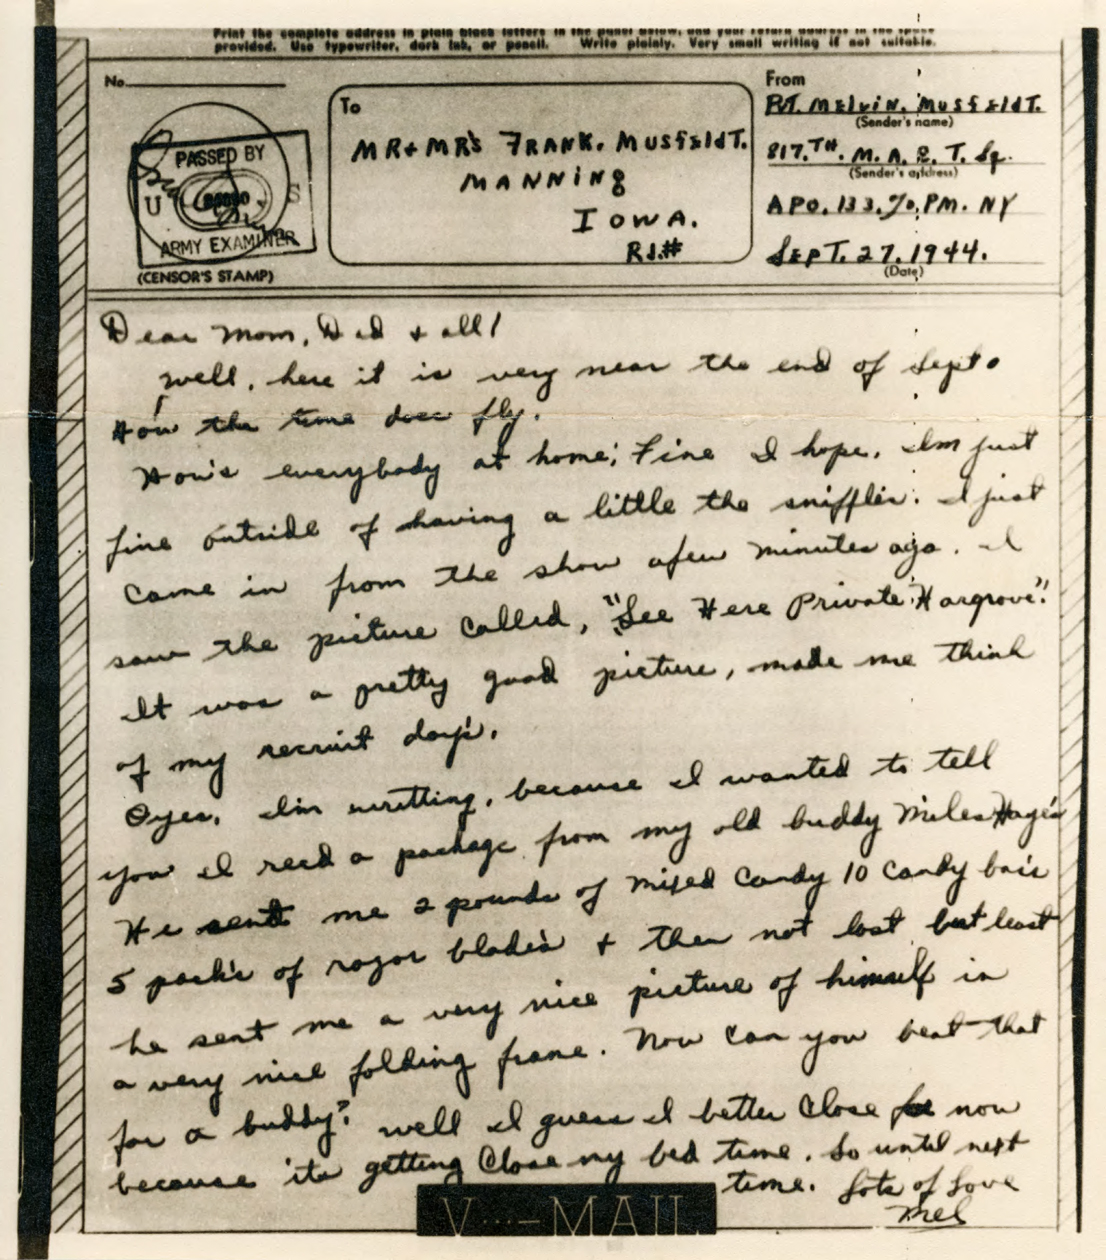 Print the complete address in plain black letters in the panel below, and your return address in the space
provided. Use typewriter, dark ink, or pencil. Write plainly. Very small writing if not suitable.
No.
PASSED BY
U S
ARMY EXAMINER
(CENSOR'S STAMP)
To
MR + MR's FRANK. MUSFELDT.
MANNING
IOWA.
Rd.#
From
PVT. MELVIN. MUSFELDT.
(Sender's name)
817.TH. M. A. E. T. Sq.
(Sender's address)
APO. 133. %. PM. NY
SEPT. 27. 1944.
(Date)
Dear Mom, Dad + all!
Well, here it is very near the end of Sept.
How the time does fly.
How's everybody at home; Fine I hope. I'm just
fine outside of having a little the sniffles. I just
came in from the show afew minutes ago. I
saw the picture called, "See Here Private Hargrove".
It was a pretty good picture, made me think
of my recruit day's.
Oyes, I'm writting, because I wanted to tell
you I recd a package from my old buddy Miles Hage's
He sent me 2 pounds of mixed candy 10 candy bar's
5 pack's of razor blade's + then not last but least
he sent me a very nice picture of himself in
a very nice folding frame. Now can you beat that
for a buddy? well I guess I better close now
because its getting close my bed time. So until next
time. Lots of Love
Mel
V···—MAIL